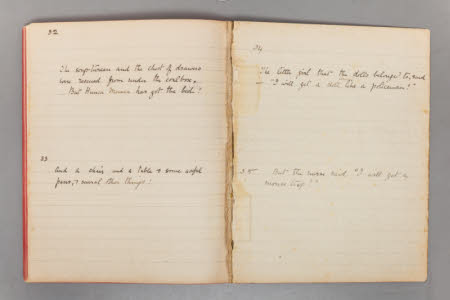 32
The crape-screen and the chest of drawers
were rescued from under the coal-box.
But Hunca Munca has got the book!
33
And a chair, and a table & some awful
pans, & several other things!
34
The little girl that the dolls belonged to, said
"I will get a doll like a policeman!"
35 But the nurse said "I will get a
mouse trap!"